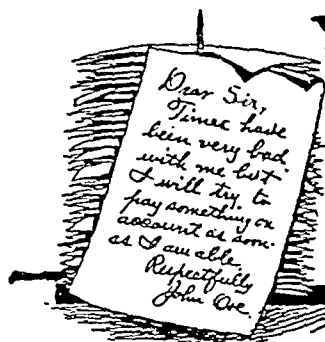 Dear Sir,
Times have
been very bad
with me but
I will try to
pay something on
account as soon
as I am able
Respectfully
John Doe.